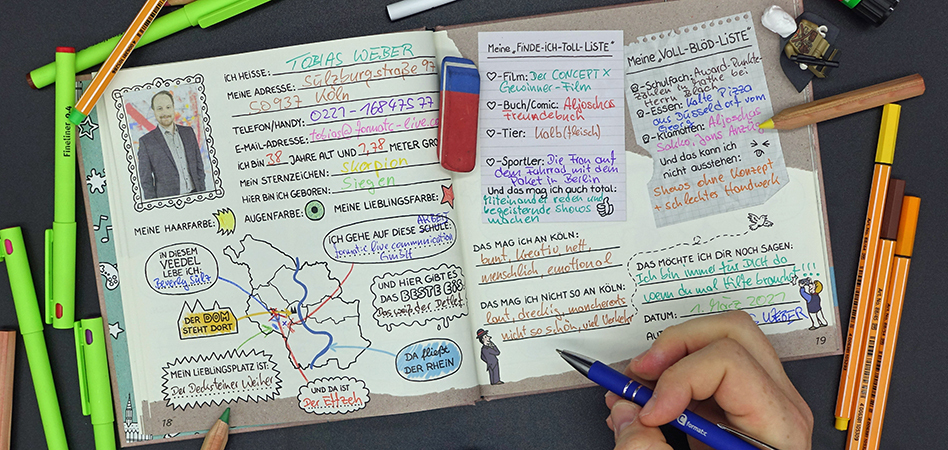 ICH HEISSE: TOBIAS WEBER
MEINE ADRESSE: Sülzburgstraße 97
50937 Köln
TELEFON/HANDY: 0221-168475 77
E-MAIL-ADRESSE: tobias@formatc-live.co
ICH BIN 38 JAHRE ALT UND 2,78 METER GRO
MEIN STERNZEICHEN: Skorpion
HIER BIN ICH GEBOREN: Siegen
MEINE HAARFARBE:
AUGENFARBE:
MEINE LIEBLINGSFARBE:
IN DIESEM
VEEDEL
LEBE ICH:
ICH GEHE AUF DIESE SCHULE:
live communication
GmbH
UND HIER GIBT ES
DAS BESTE EIS:
DER DOM
STEHT DORT
DA fließt
DER RHEIN
MEIN LIEBLINGSPLATZ IST:
Der Decksteiner Weiher
UND DA IST
Der Effzeh
18
Meine „FiNDE-iCH-TOLL-LiSTE“
-Film: Der CONCEPT X
Gewinner-Film
-Buch/Comic: Aljoschas
freundebuch
-Tier: Kalb(fleisch)
-Sportler: Die Frau auf
dem Fahrrad mit dem
Paket in Berlin
Und das mag ich auch total:
Miteinander reden und
begeisternde Shows
machen
DAS MAG ICH AN KÖLN:
bunt, kreativ, nett,
menschlich emotional
DAS MAG ICH NICHT SO AN KÖLN:
laut, dreckig, mancherorts
nicht so schön, viel Verkehr
Meine „VOLL-BLÖD-LiSTE“
-Schulfach: Award-Punkte-
zählen in Mathe bei
Herrn Blach
-Essen: Kalte Pizza
aus Düsseldorf vom
-Klamotten: Aljoschas
Sakko, Jans Anzug
Und das kann ich
nicht ausstehen:
Shows ohne Konzept
+ schlechtes Handwerk
DAS MÖCHTE ICH DIR NOCH SAGEN:
Ich bin immer für Dich da
wenn du mal Hilfe brauchst!!!
DATUM: 1. März 2021
19
Fineliner
formatc